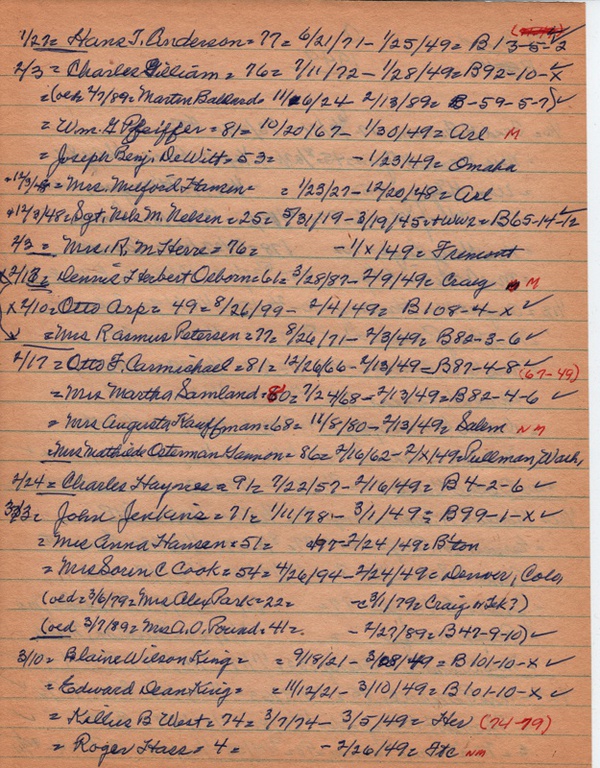 1/27 = Hans T. Anderson = 77 = 6/21/71 - 1/25/49 = B13-5-2 ✓
2/3 = Charles Gilliam = 76 = 7/11/72 - 1/28/49 = B92-10-X ✓
= (oed 2/7/89 = Marten Ballard = 11/6/24 - 2/13/89 = B-59-5-7) ✓
= Wm. G. Pfeiffer = 81 = 10/20/67 - 1/30/49 = Arl M
= Joseph Benj. DeWitt = 53 = - 1/23/49 = Omaha
12/3/48 = Mrs. Milford Hansen = = 1/23/27 - 12/20/48 = Arl
12/3/48 = Sgt. Nels M. Nelsen = 25 = 5/31/19 - 3/19/45 = + WW2 = B65-14-12 ✓
2/3 = Mrs. R. M Herre = 76 = - 1/X/49 = Fremont
X 2/18 = Dennis Herbert Osborn = 61 = 3/28/87 - 2/9/49 = Craig M
X 2/10 = Otto Arp = 49 = 8/26/99 - 2/4/49 = B108-4-X ✓
= Mrs Rasmus Petersen = 77 = 8/26/71 - 2/3/49 = B82-3-6 ✓
2/17 = Otto F. Carmichael = 81 = 12/26/66 - 2/13/49 = B87-4-8 ✓ (67-49)
= Mrs Martha Samland = 80 = 7/24/68 - 2/13/49 = B82-4-6 ✓
= Mrs Augusta Kauffman = 68 = 11/8/80 - 2/13/49 = Salem NM
= Mrs Mathilde Osterman Gannon = 86 = 2/16/62 - 2/X/49 = Pullman, Wash,
2/24 = Charles Haynes = 91 = 7/22/57 - 2/16/49 = B4-2-6 ✓
3/3 = John Jenkins = 71 = 1/11/78 - 3/1/49 = B99-1-X ✓
= Mrs Anna Hansen = 51 = 97 - 2/24/49 = B'ton
= Mrs Soren C Cook = 54 = 4/26/94 - 2/24/49 = Denver, Colo,
(oed = 3/6/79 = Mrs Alex Park = 22 = - 3/1/79 = Craig Tek?)
(oed 3/7/89 = Mrs A. O. Pound = 41 = - 2/27/89 = B47-9-10) ✓
3/10 = Blaine Wilson King = = 9/18/21 - 3/08/49 = B101-10-X ✓
= Edward Dean King = = 11/12/21 - 3/10/49 = B101-10-X ✓
= Killus B West = 74 = 3/7/74 - 3/5/49 = Her (74-79)
= Roger Hass = 4 = - 2/26/49 = Itc NM